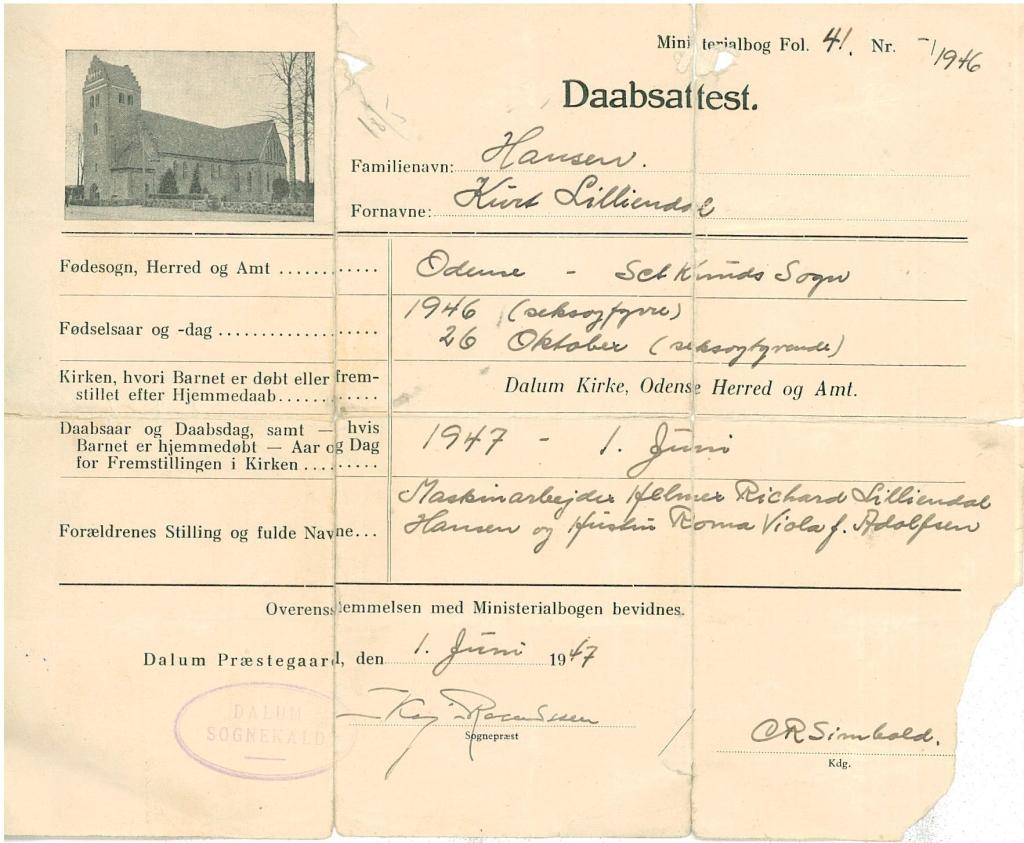 Ministerialbog Fol. 41. Nr. -/1946
Daabsattest.
Familienavn: Hansen.
Fornavne: Kurt Lilliendal
Fødesogn, Herred og Amt Odense - Sct Knuds Sogn
Fødselsaar og -dag 1946 (seksogfyrre)
26 Oktober (seksogtyvende)
Kirken, hvori Barnet er døbt eller frem-
stillet efter Hjemmedaab Dalum Kirke, Odense Herred og Amt.
Daabsaar og Daabsdag, samt — hvis
Barnet er hjemmedøbt — Aar og Dag
for Fremstillingen i Kirken 1947 - 1. Juni
Forældrenes Stilling og fulde Navne... Maskinarbejder Helmer Richard Lilliendal
Hansen og Hustru Roma Viola f. Adolfsen
Overensstemmelsen med Ministerialbogen bevidnes.
Dalum Præstegaard, den 1. Juni 1947
DALUM
SOGNEKALD
Kaj Rasmussen
Sognepræst
/ CR Simbold.
Kdg.